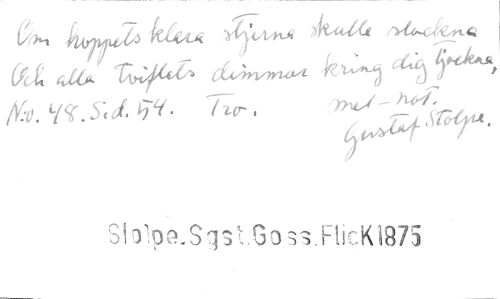 Om hoppets klara stjerna skulle slockna
Och alla tviflets dimmor kring dig tjockna,
N:o. 48. Sid. 54. Tro. met-not.
Gustaf Stolpe.
Stolpe.Sgst.Goss.FlicK1875